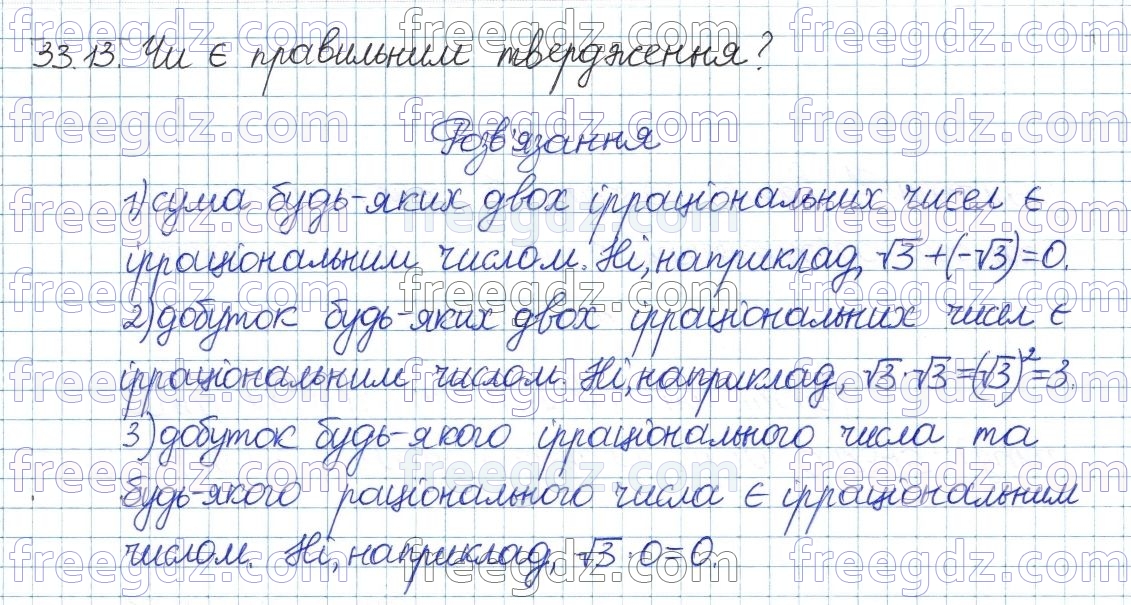 33.13. Чи є правильним твердження?
Розв'язання
1) сума будь-яких двох ірраціональних чисел є
ірраціональним числом. Ні, наприклад, √3+(-√3)=0.
2) добуток будь-яких двох ірраціональних чисел є
ірраціональним числом. Ні, наприклад, √3·√3=(√3)²=3.
3) добуток будь-якого ірраціонального числа та
будь-якого раціонального числа є ірраціональним
числом. Ні, наприклад, √3·0=0.
freegdz.com